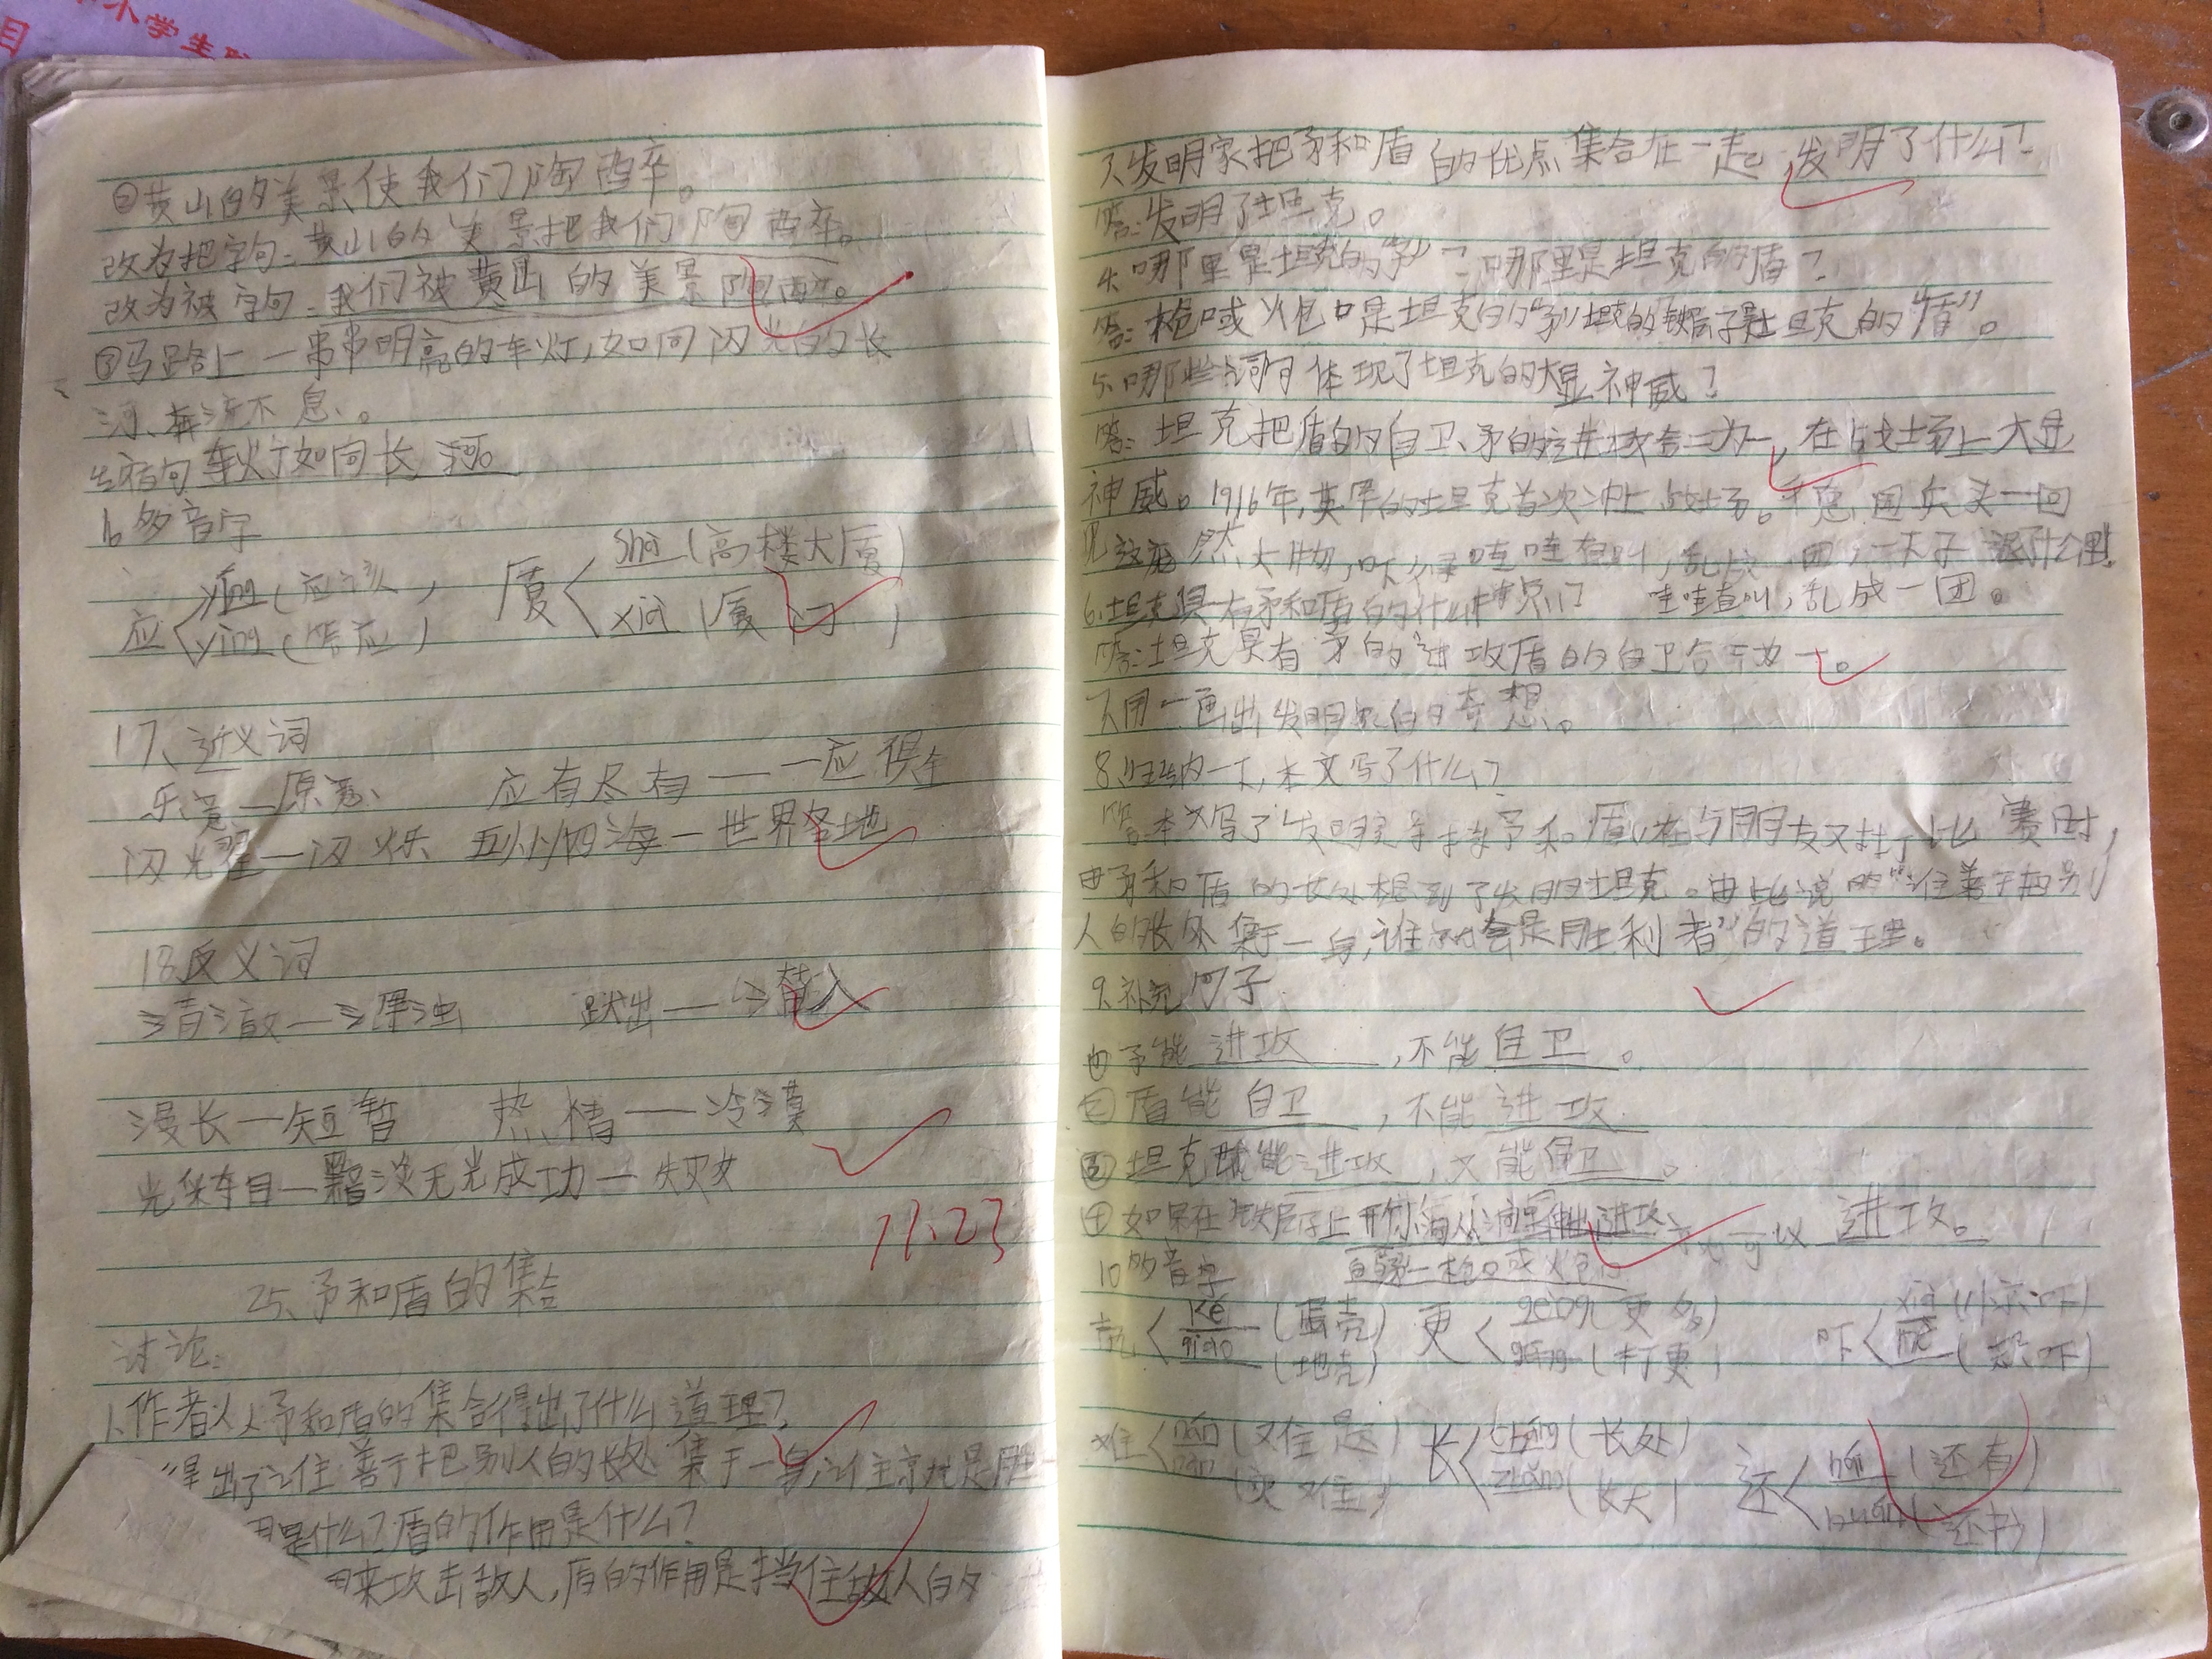 小学生
目
②黄山的美景使我们陶醉。
改为把字句:黄山的美景把我们陶醉。
改为被字句:我们被黄山的美景陶醉。
③马路上一串串明亮的车灯,如同闪光的长
河,奔流不息。
缩句 车灯如同长河。
16多音字
应 yīng(应该) 厦 shà(高楼大厦)
yìng(答应) xià(厦门)
17、近义词
乐意—原意 应有尽有——一应俱全
闪耀—闪烁 五湖四海—世界各地
18反义词
清澈—浑浊 跃出——潜入
漫长—短暂 热情——冷漠
光彩夺目—黯淡无光 成功—失败
11.23
25、矛和盾的集合
讨论:
1、作者从矛和盾的集合得出了什么道理?
得出了谁善于把别人的长处集于一身,谁就是胜
用是什么?盾的作用是什么?
用来攻击敌人,盾的作用是挡住敌人的
3、发明家把矛和盾的优点集合在一起,发明了什么?
答:发明了坦克。
4、哪里是坦克的"矛"?哪里是坦克的盾?
答:枪口或火包口是坦克的"矛"坦克的铁屋子是坦克的"盾"。
5、哪些词句体现了坦克的大显神威?
答:坦克把盾的自卫、矛的进攻合二为一,在战场上大显
神威。1916年,英军的坦克首次冲上战场。德国兵头一回
见这庞然大物,吓得哇哇直叫,乱成一团,一下子退了十公里。
6、坦克具有矛和盾的什么特点? 哇哇直叫,乱成一团。
答:坦克具有矛的进攻盾的自卫合于为一。
7、用—画出发明家的奇想。
8、归纳一下,本文写了什么?
答:本文写了发明家手持矛和盾,在与朋友对打比赛时,
由矛和盾的长处想到了发明坦克。由此说明"谁善于把别
人的长处集于一身,谁就会是胜利者"的道理。
9、补充句子
①矛能 进攻 ,不能自卫 。
②盾能 自卫 ,不能 进攻
③坦克既能进攻 ,又能自卫 。
④如果在铁屋子上开个小洞从洞里伸出进攻 就可以 进攻。
10多音字 的矛—枪口或火包口
壳 ké(蛋壳) 更 gèng(更多) 吓 xià(惊吓)
qiào(地壳) gēng(打更) hè(恐吓)
难 nán(难题) 长 cháng(长处) 还 hái(还有)
nàn(灾难) zhǎng(长大) huán(还书)